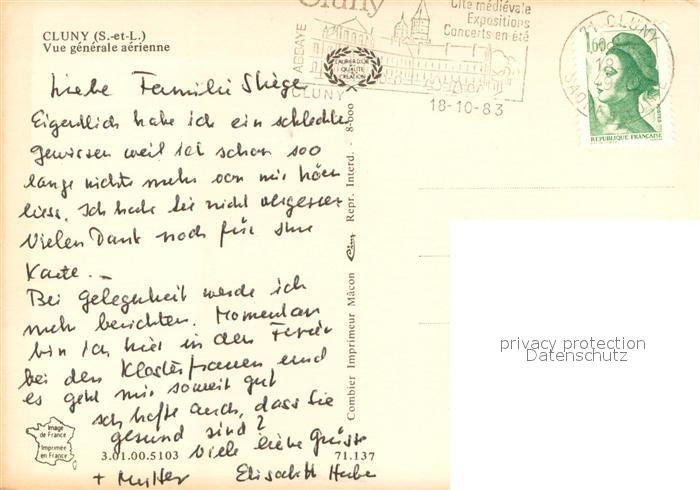 CLUNY (S.-et-L.)
Vue générale aérienne
Liebe Familie
Eigentlich habe ich ein schlechtes
gewissen weil ich schon soo
lange nichts mehr von mir hören
liess. Ich habe Sie nicht vergessen
Vielen Dank noch für Ihre
Karte.-
Bei Gelegenheit werde ich
mehr berichten. Momentan
bin ich hier in den Ferien
bei den Klosterfrauen und
es geht mir soweit gut
ich hoffe auch, dass Sie
gesund sind?
Viele liebe Grüsse
+ Mutter Elisabeth Huber
Image
de France
Imprimée
en France
3.01.00.5103
71.137
Combier Imprimeur Mâcon Cim Repr. Interd. - 8-000
LAURÉAT D'OR
QUALITÉ
CRÉATION
ABBAYE
CLUNY
Cluny
Cité médiévale
Expositions
Concerts en été
18-10-83
71 CLUNY
18
1,60
POSTES
REPUBLIQUE FRANÇAISE
privacy protection
Datenschutz